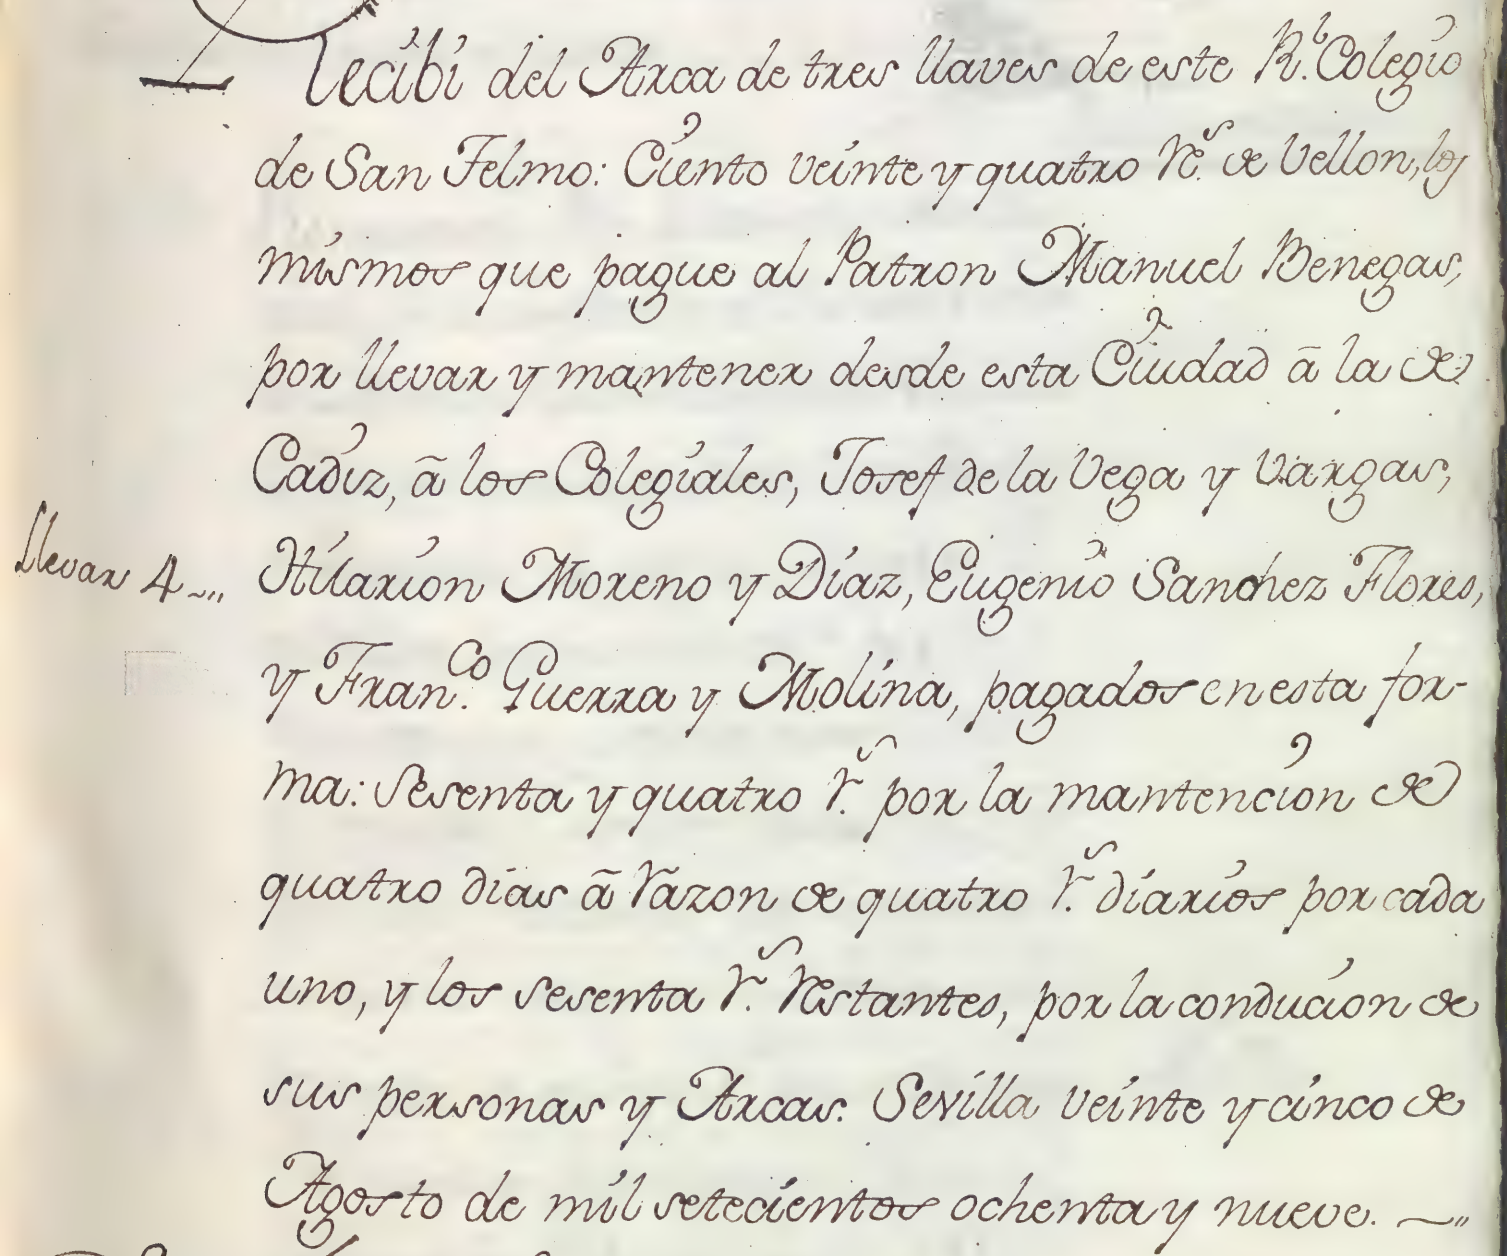 Recibi del Arca de tres llaves de este Rl. Colegio
de San Telmo: Ciento veinte y quatro Rs. de Vellon, los
mismos que pague al Patron Manuel Benegas,
por llevar y mantener desde esta Ciudad ā la de
Cadiz, ā los Colegiales, Josef de la Vega y Vargas,
llevar 4
Hilarion Moreno y Diaz, Eugenio Sanchez Flores,
y Franco. Guerra y Molina, pagados en esta for-
ma: Sesenta y quatro rs. por la mantencion de
quatro dias ā razon de quatro rs. diarios por cada
uno, y los sesenta rs. restantes, por la conducion de
sus personas y Arcas. Sevilla veinte y cinco de
Agosto de mil setecientos ochenta y nueve.